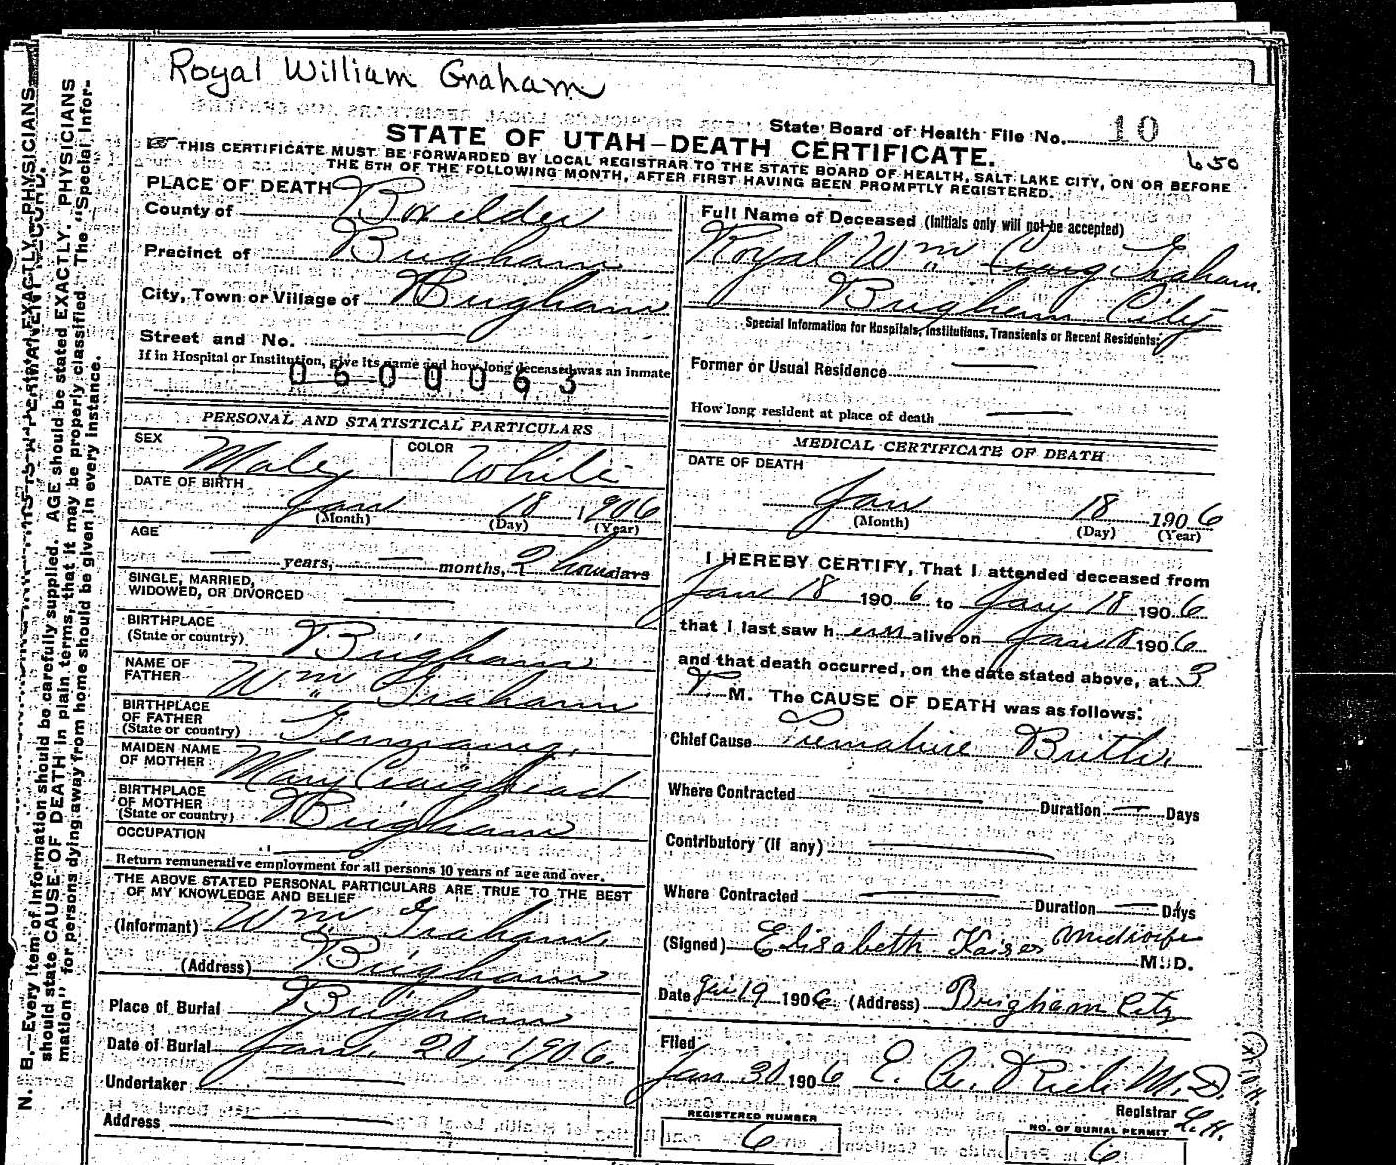 Royal William Graham
State Board of Health File No. 10
STATE OF UTAH—DEATH CERTIFICATE.
650
THIS CERTIFICATE MUST BE FORWARDED BY LOCAL REGISTRAR TO THE STATE BOARD OF HEALTH, SALT LAKE CITY, ON OR BEFORE
THE 5TH OF THE FOLLOWING MONTH, AFTER FIRST HAVING BEEN PROMPTLY REGISTERED.
PLACE OF DEATH
County of Boxelder
Precinct of Brigham
City, Town or Village of Brigham
Street and No.
If in Hospital or Institution, give its name and how long deceased was an inmate
0600063
PERSONAL AND STATISTICAL PARTICULARS
SEX Male COLOR White
DATE OF BIRTH
Jan 18 1906
(Month) (Day) (Year)
AGE
years, months, 2 hours days
SINGLE, MARRIED,
WIDOWED, OR DIVORCED
BIRTHPLACE
(State or country) Brigham
NAME OF
FATHER Wm Graham
BIRTHPLACE
OF FATHER
(State or country) Germany.
MAIDEN NAME
OF MOTHER Mary Craighead
BIRTHPLACE
OF MOTHER
(State or country) Brigham
OCCUPATION
Return remunerative employment for all persons 10 years of age and over.
THE ABOVE STATED PERSONAL PARTICULARS ARE TRUE TO THE BEST
OF MY KNOWLEDGE AND BELIEF
(Informant) Wm Graham
(Address) Brigham
Place of Burial Brigham
Date of Burial Jan. 20, 1906.
Undertaker
Address
Full Name of Deceased (Initials only will not be accepted)
Royal Wm Craig Graham.
Brigham City
Special Information for Hospitals, Institutions, Transients or Recent Residents:
Former or Usual Residence
How long resident at place of death
MEDICAL CERTIFICATE OF DEATH
DATE OF DEATH
Jan 18 1906
(Month) (Day) (Year)
I HEREBY CERTIFY, That I attended deceased from
Jan 18 1906 to Jany 18 1906
that I last saw h em alive on Jan 18 1906
and that death occurred, on the date stated above, at 3
P M. The CAUSE OF DEATH was as follows:
Chief Cause Premature Birth.
Where Contracted Duration Days
Contributory (If any)
Where Contracted Duration Days
(Signed) Elisabeth Kaiser Midwife M. D.
Date Jan 19 1906 (Address) Brigham City
Filed
Jan 30 1906 E. A. Rich M.D.
Registrar
L.H.
REGISTERED NUMBER
6
NO. OF BURIAL PERMIT
6
N. B.—Every item of Information should be carefully supplied. AGE should be stated EXACTLY. PHYSICIANS
should state CAUSE OF DEATH in plain terms, that it may be properly classified. The "Special Infor-
mation" for persons dying away from home should be given in every instance.